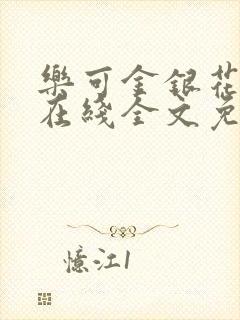 樂可金銀花
在綫全文免
憶江1